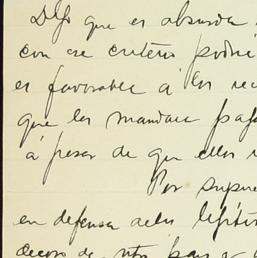 Dijo que es absurda
con ese criterio podri
es favorable á los rec
que les mandara paja
á pesar de que ellos
Por supue
en defensa de los legíti
decoro de ntro. pais y